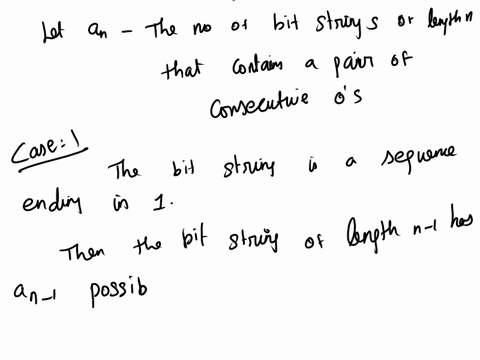 Let an - The no of bit strings of length n
that contain a pair of
consecutive 0's
Case:1
The bit string is a sequence
ending in 1.
Then the bit string of length n-1 has
an-1 possib